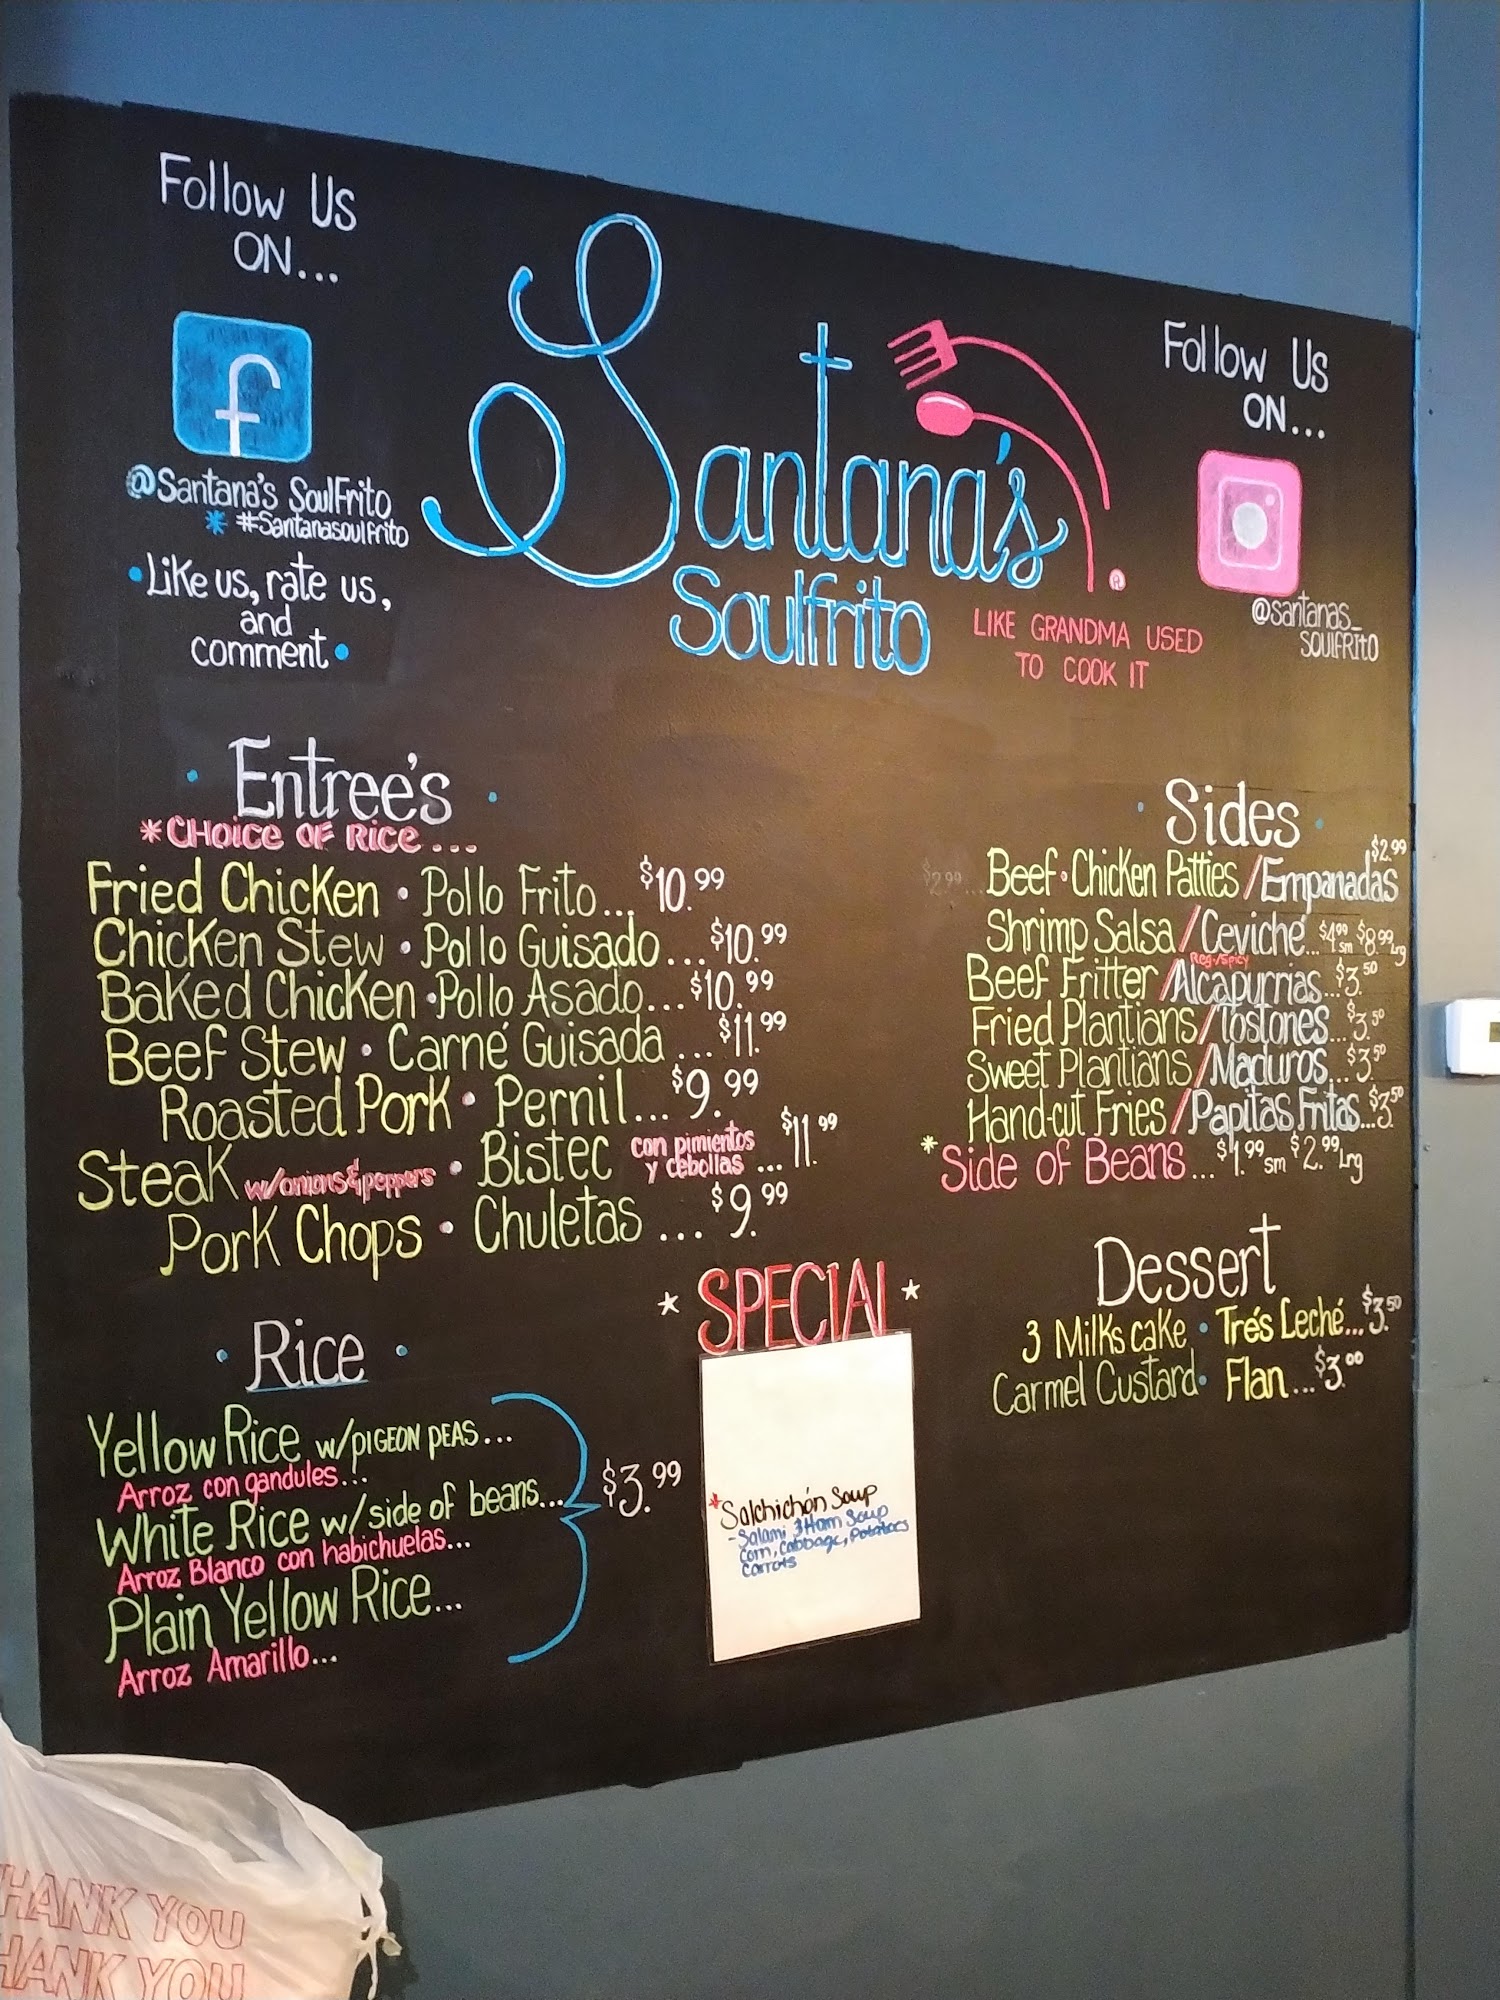 Follow Us
ON...
@Santana's SoulFrito
* #Santanasoulfrito
• Like us, rate us,
and
comment •
Santana's
Soulfrito
LIKE GRANDMA USED
TO COOK IT
Follow Us
ON...
@santanas_
SOULFRITO
• Entree's •
*CHOICE OF RICE ...
Fried Chicken • Pollo Frito... $10.99
Chicken Stew • Pollo Guisado... $10.99
Baked Chicken • Pollo Asado... $10.99
Beef Stew • Carné Guisada ... $11.99
Roasted Pork • Pernil... $9.99
Steak w/onions & peppers • Bistec con pimientos y cebollas ... $11.99
Pork Chops • Chuletas ... $9.99
• Rice •
Yellow Rice w/PIGEON PEAS...
Arroz con gandules...
White Rice w/side of beans...
Arroz Blanco con habichuelas...
Plain Yellow Rice...
Arroz Amarillo...
$3.99
* SPECIAL *
*Salchichón Soup
-Salami, Ham Soup
Corn, Cabbage, Potatoes
Carrots
• Sides •
$2.99... Beef • Chicken Patties / Empanadas $2.99
Shrimp Salsa / Ceviche... $4.99 sm $8.99 Lrg
Reg./Spicy
Beef Fritter / Alcapurrias... $3.50
Fried Plantians / Tostones... $3.50
Sweet Plantians / Maduros... $3.50
Hand-cut Fries / Papitas Fritas... $3.50
* Side of Beans... $1.99 sm $2.99 Lrg
Dessert
3 Milks cake • Trés Leché... $3.50
Carmel Custard • Flan... $3.00
HANK YOU
HANK YOU